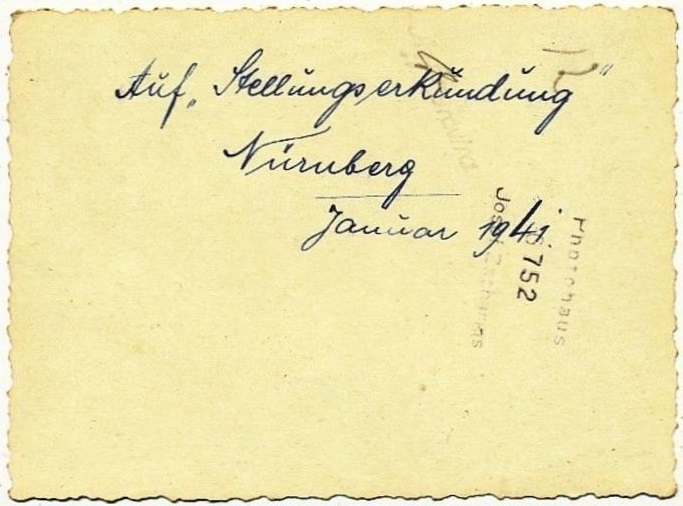 Auf „Stellungserkundung"
Nürnberg
Januar 1941.
Photohaus
752
Josef